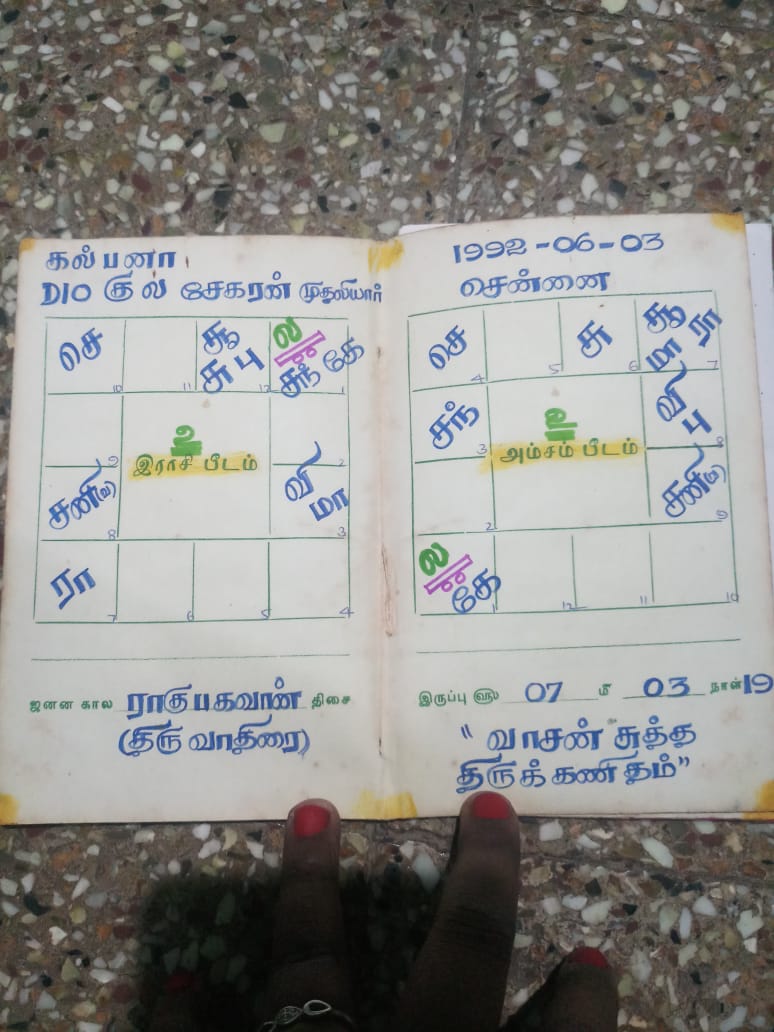 கல்பனா
D/O கு ல சேகரன் முதலியார்
செ
சூ
சு பு
ல
சந் கே
10
11
12
1
9
உ
இராசி பீடம்
2
சனி(வ)
வி
மா
8
3
ரா
7
6
5
4
ஜனன கால ராகுபகவான் திசை
(திருவாதிரை)
1992-06-03
சென்னை
செ
சு
சூ
மா
ரா
4
5
6
7
சந்
வி
பு
3
அம்சம் பீடம்
8
சனி(வ)
2
9
ல
கே
1
12
11
10
இருப்பு வரு 07 மீ 03 நாள் 19
"வாசன் சுத்த
திருக்கணிதம்"